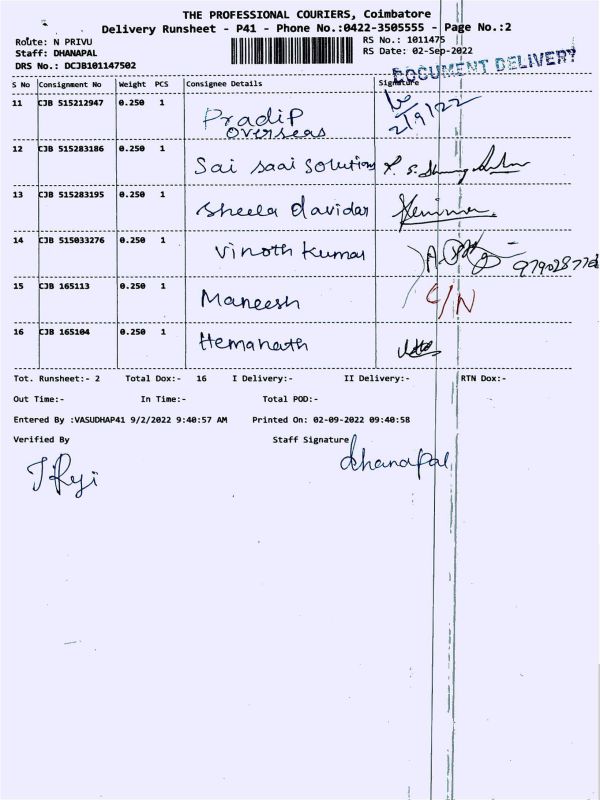 THE PROFESSIONAL COURIERS, Coimbatore
Delivery Runsheet - P41 - Phone No.:0422-3505555 - Page No.:2
Route: N PRIVU RS No.: 1011475
Staff: DHANAPAL RS Date: 02-Sep-2022
DRS No.: DCJB101147502
DOCUMENT DELIVERY
S No Consignment No Weight PCS Consignee Details Signature
11 CJB 515212947 0.250 1 Pradip
Overseas
2/9/22
12 CJB 515283186 0.250 1 Sai saai solution
13 CJB 515283195 0.250 1 Sheela davidar
14 CJB 515033276 0.250 1 Vinoth kumar
15 CJB 165113 0.250 1 Maneesh C/N
16 CJB 165104 0.250 1 Hemanath
Tot. Runsheet:- 2 Total Dox:- 16 I Delivery:- II Delivery:- RTN Dox:-
Out Time:- In Time:- Total POD:-
Entered By :VASUDHAP41 9/2/2022 9:40:57 AM Printed On: 02-09-2022 09:40:58
Verified By Staff Signature
dhanapal